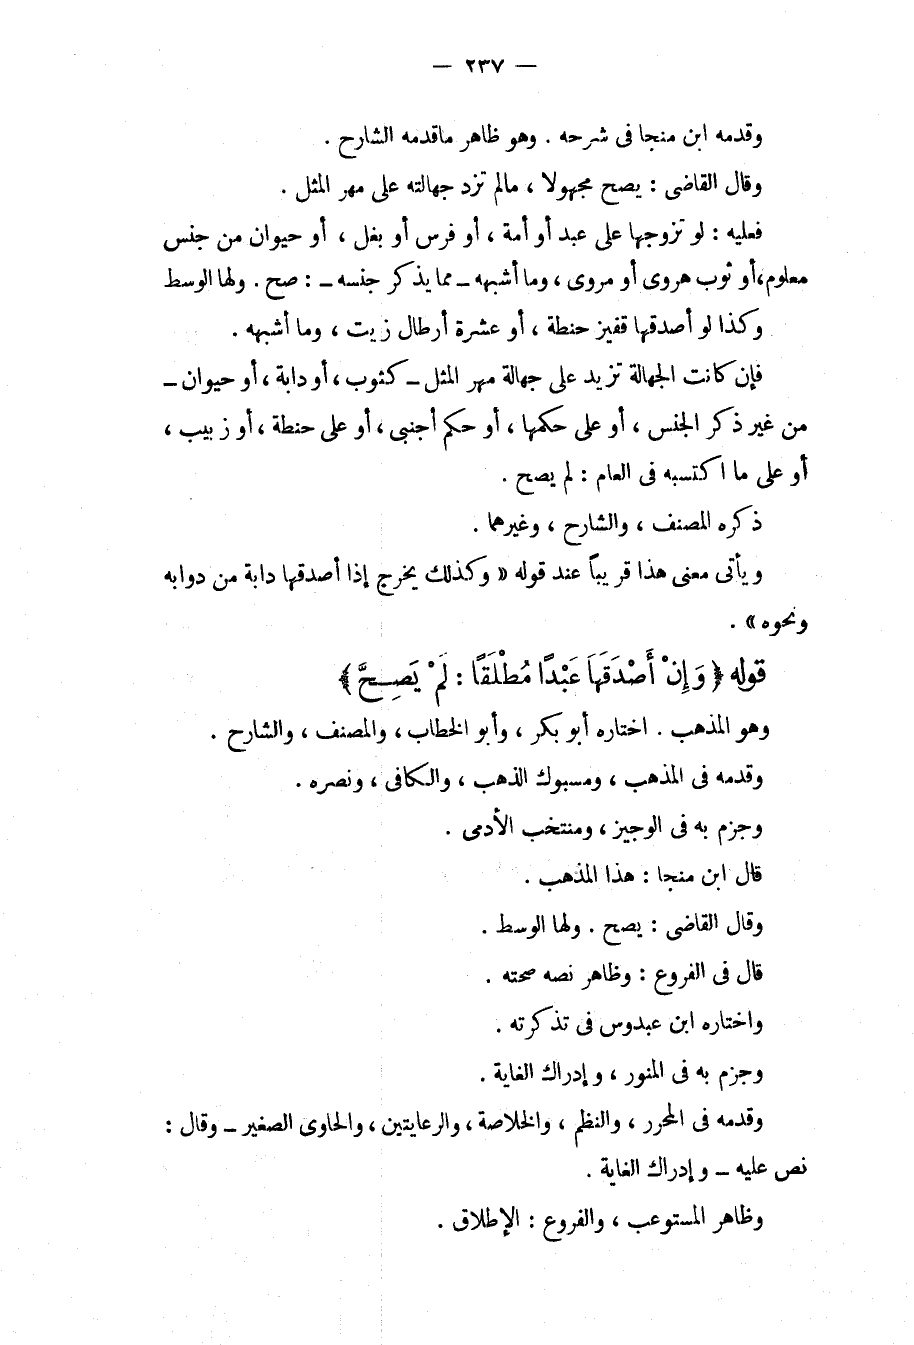 — ٢٣٧ —
وقدمه ابن منجا فى شرحه . وهو ظاهر ماقدمه الشارح .
وقال القاضى : يصح مجهولا ، مالم تزد جهالته على مهر المثل .
فعليه : لو تزوجها على عبد أو أمة ، أو فرس أو بغل ، أو حيوان من جنس
معلوم،أو ثوب هروى أو مروى ، وما أشبهه ــ مما يذكر جنسه ــ : صح . ولها الوسط
وكذا لو أصدقها قفيز حنطة ، أو عشرة أرطال زيت ، وما أشبهه .
فإن كانت الجهالة تزيد على جهالة مهر المثل ــ كثوب ، أو دابة ، أو حيوان ــ
من غير ذكر الجنس ، أو على حكمها ، أو حكم أجنبى ، أو على حنطة ، أو زبيب ،
أو على ما اكتسبه فى العام : لم يصح .
ذكره المصنف ، والشارح ، وغيرهما .
ويأتى معنى هذا قريباً عند قوله « وكذلك يخرج إذا أصدقها دابة من دوابه
ونحوه » .
قوله ﴿ وَإِنْ أَصْدَقَهَا عَبْدًا مُطْلَقًا : لَمْ يَصِحَّ ﴾
وهو المذهب . اختاره أبو بكر ، وأبو الخطاب ، والمصنف ، والشارح .
وقدمه فى المذهب ، ومسبوك الذهب ، والكافى ، ونصره .
وجزم به فى الوجيز ، ومنتخب الأدمى .
قال ابن منجا : هذا المذهب .
وقال القاضى : يصح . ولها الوسط .
قال فى الفروع : وظاهر نصه صحته .
واختاره ابن عبدوس فى تذكرته .
وجزم به فى المنور ، وإدراك الغاية .
وقدمه فى المحرر ، والنظم ، والخلاصة ، والرعايتين ، والحاوى الصغير ــ وقال :
نص عليه ــ وإدراك الغاية .
وظاهر المستوعب ، والفروع : الإطلاق .